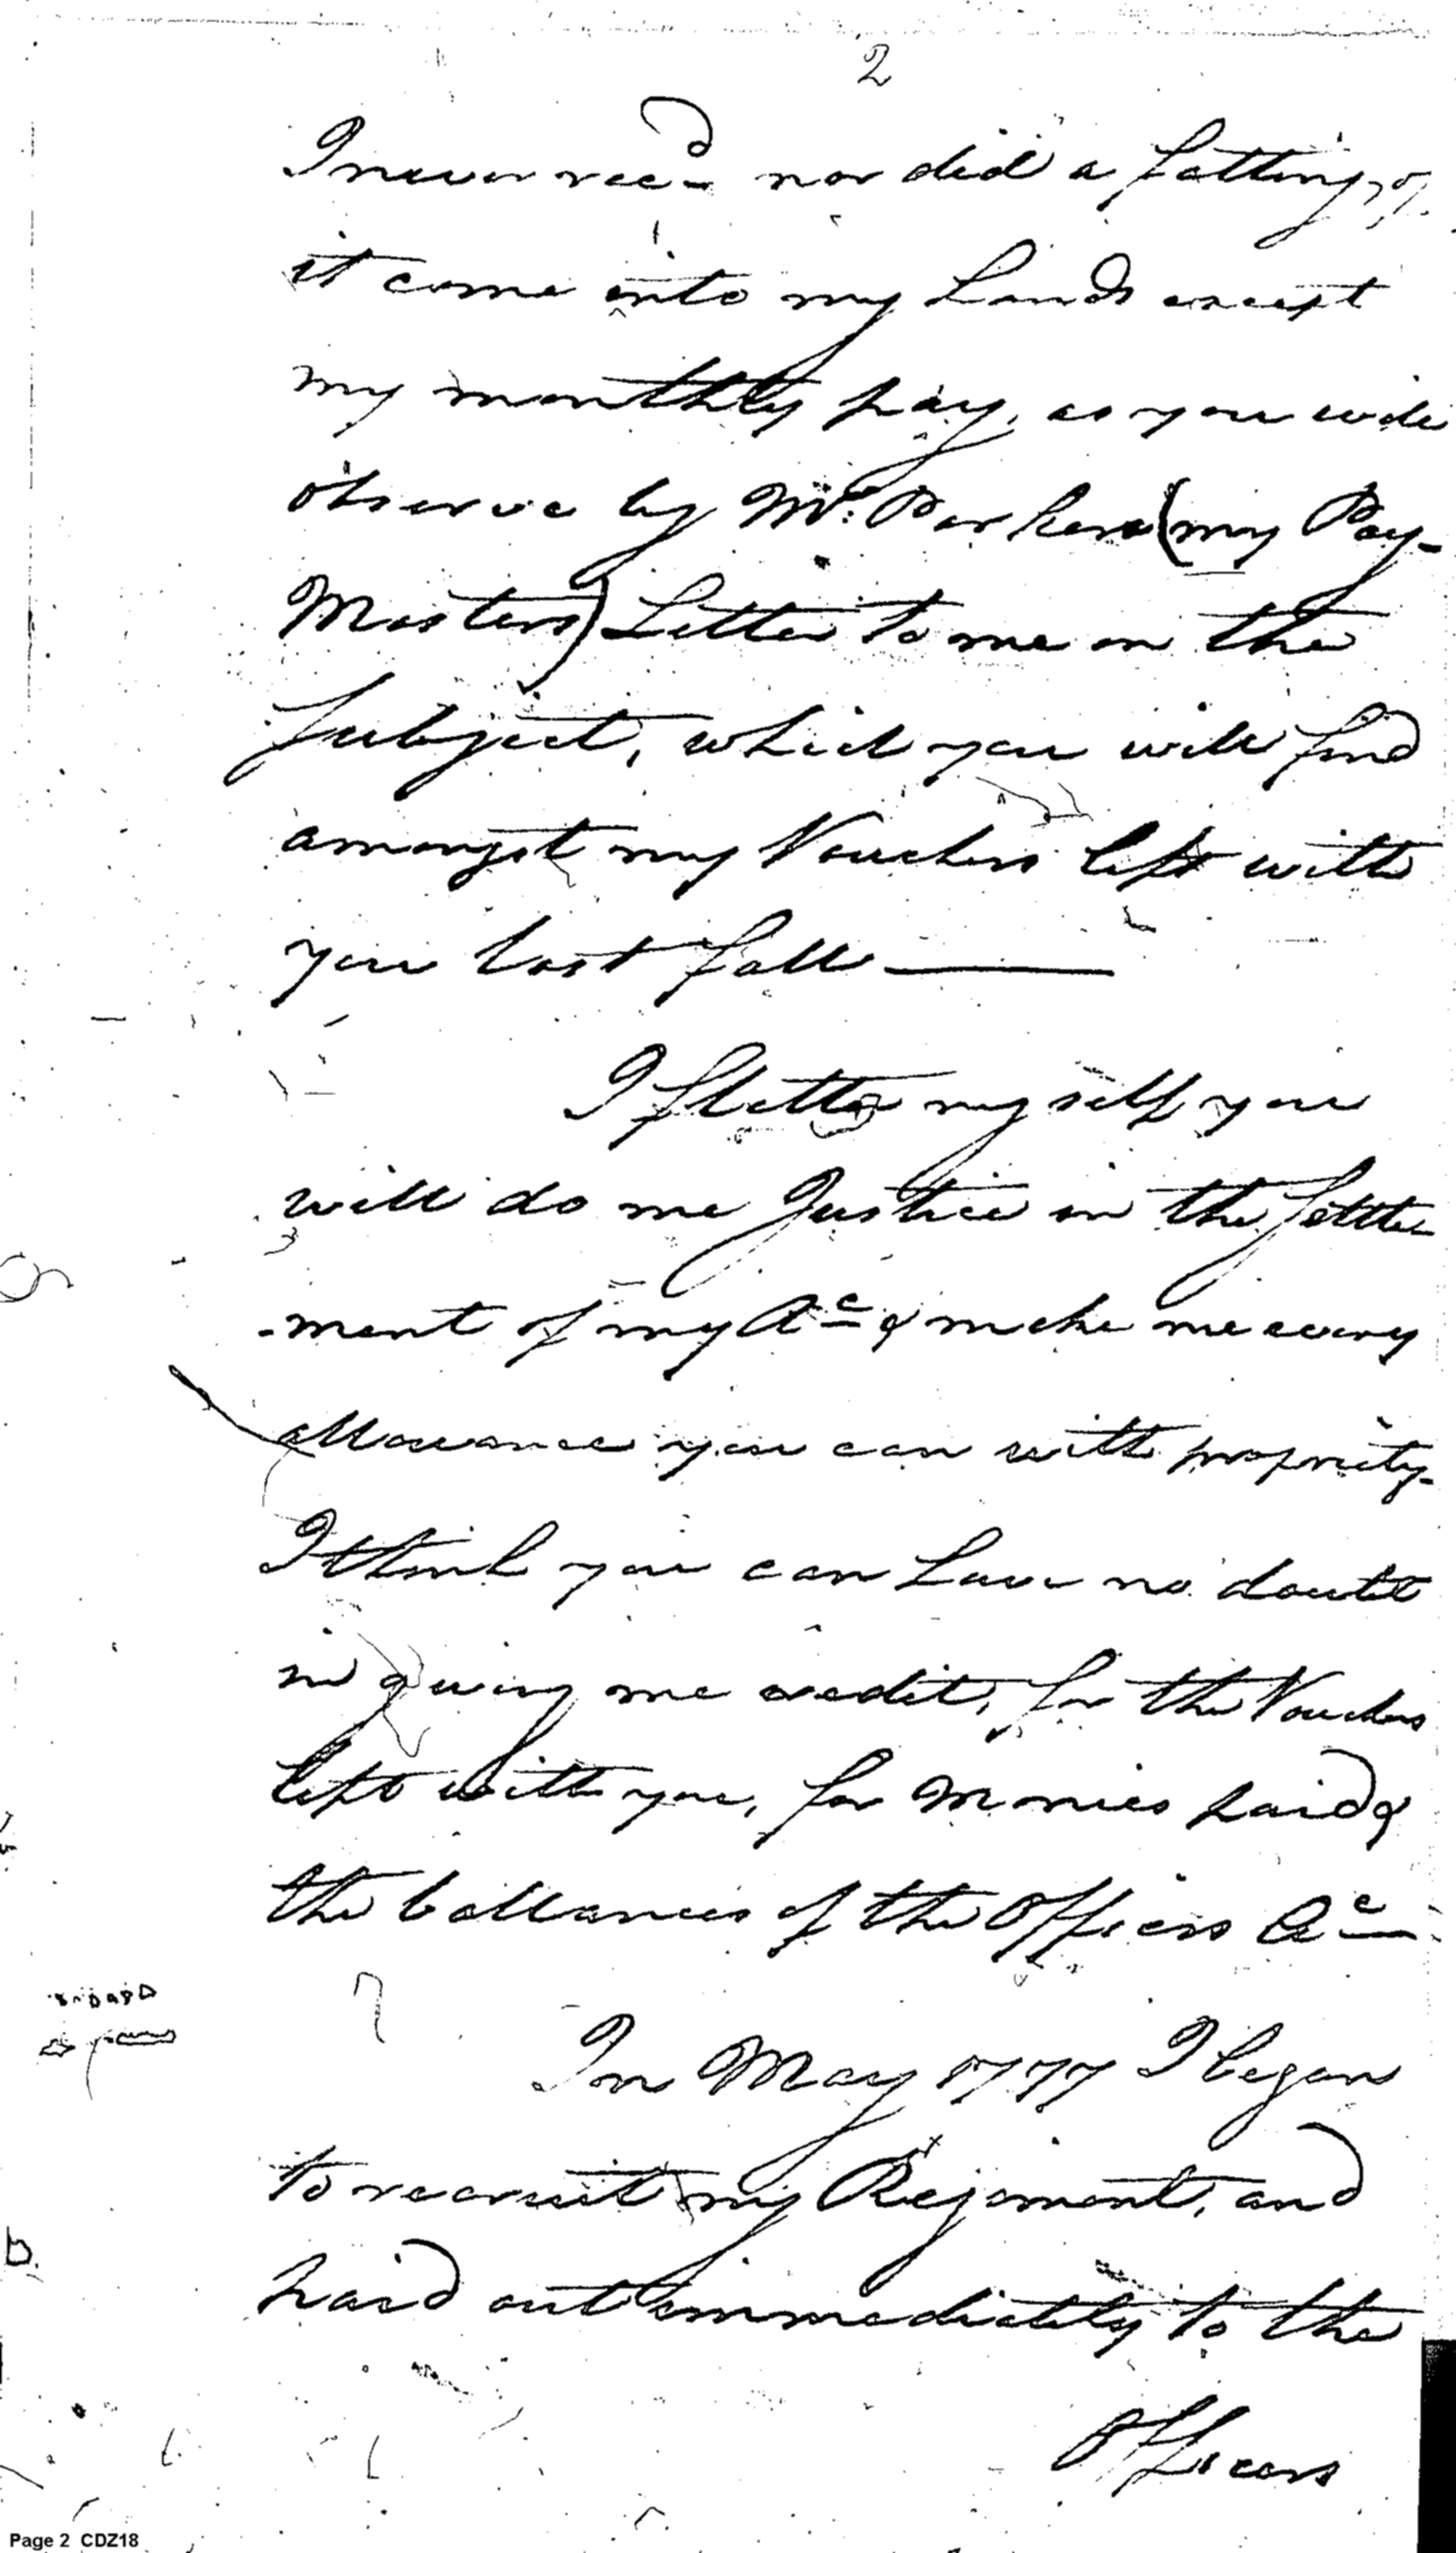 2
I never rec^d nor did a fatthing of
it come into my hands except
my monthly pay, as you will
observe by M^r: Parkers (my Pay-
Masters) Letter to me on the
Subject, which you will find
amongst my Vouchers left with
you last fall ———
I flatter myself you
will do me Justice in the Settle
-ment of my A^c & make me every
allowance you can with propriety-
I think you can have no doubt
in giving me credit, for the Vouchers
left with you, for Monies paid &
the ballances of the Officers A^c
In May 1777 I began
to recruit my Regiment, and
paid out immediately to the
Officers
Page 2 CDZ18